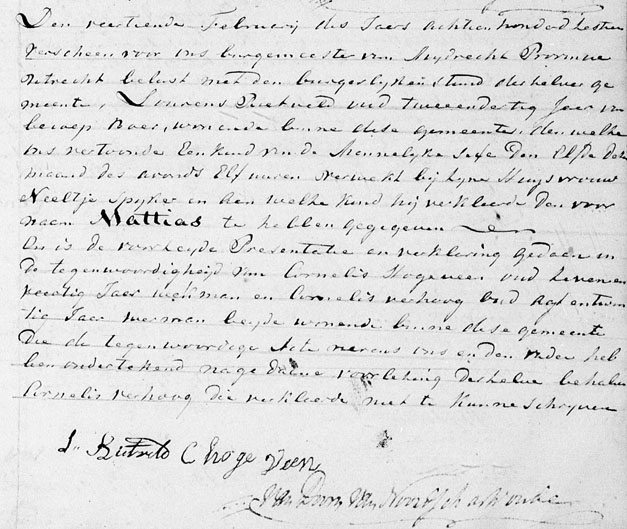 Den veertiende Februarij des Jaers achtien honderd sestien
verscheen voor ons burgemeester van Mydrecht Provincie
utrecht belast met den burgerlyken stand deshelver ge
meente, Lourens Rietveld oud tweeendertig Jaer van
beroep Boer, wonende binne dese gemeente, den welke
ons vertoonde Een kind van de Mannelyke sexe Den Elfde deser
maand des avonds Elf uuren verwekt bij zyne Huysvrouw
Neeltje Spyker en Aen welke kind hij verklaerde den voor
naam Mattias te hebben gegegeven
En is de voorseyde Presentatie en verklaring gedaen in
de tegenwoordigheyd van Cornelis Hogeveen oud seven en
veertig Jaer en Cornelis verhoog oud agt en twin
tig Jaer veenman beyde wonende binne dese gemeente
Die de tegenwoordige Acte nevens ons en den vader heb
ben ondertekend na gedaene voorlesing deshelve behalve
Cornelis verhoog die verklaerde niet te kunne schryven
L Rietveld C hoge Veen